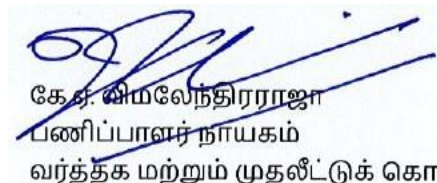 கே.ஏ. விமலேந்திரராஜா
பணிப்பாளர் நாயகம்
வர்த்தக மற்றும் முதலீட்டுக்